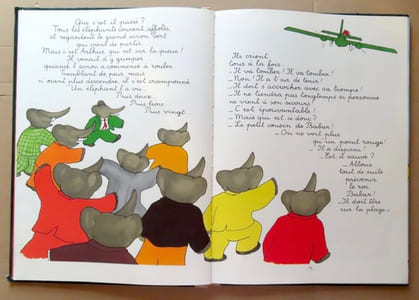 Que s'est-il passé?
Tous les éléphants courent, affolés,
et regardent le grand avion vert
qui vient de partir.
Mais c'est Arthur qui est sur la queue!
Il venait d'y grimper
quand l'avion a commencé à rouler.
Tremblant de peur, mais
n'osant plus descendre, il s'est cramponné.
Un éléphant l'a vu...
Puis deux...
Puis trois...
Puis vingt...
Ils crient
tous à la fois:
_ Il va tomber! Il va tomber!
_ Non! Il a l'air de tenir!
_ Il doit s'accrocher avec sa trompe!
_ Il ne tiendra pas longtemps si personne
ne vient à son secours!
_ C'est épouvantable!
_ Mais qui est-ce donc?
_ Le petit cousin de Babar!
_ On ne voit plus
qu'un point rouge!
_ Il a disparu!
_ Est-il sauvé?
_ Allons
tout de suite
prévenir
le roi
Babar!
_ Il doit être
sur la plage._